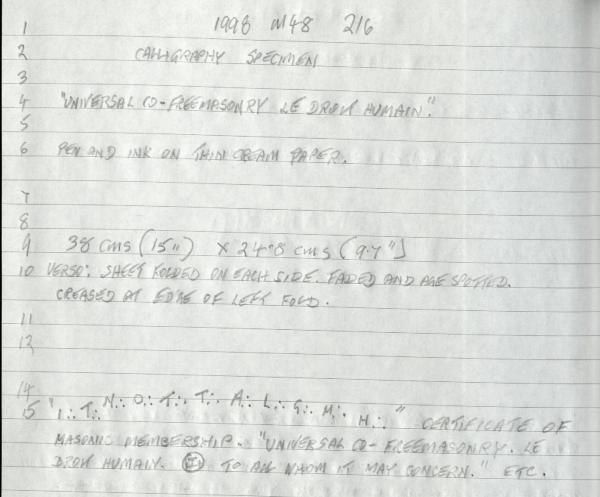 1 1998 M48 216
2 CALLIGRAPHY SPECIMEN
3
4 "UNIVERSAL CO-FREEMASONRY LE DROIT HUMAIN".
5
6 PEN AND INK ON THIN CREAM PAPER.
7
8
9 38 cms (15") x 24.8 cms (9.7")
10 VERSO: SHEET FOLDED ON EACH SIDE. FADED AND AGE SPOTTED.
CREASED AT EDGE OF LEFT FOLD.
11
12
14
15 "I∴ T∴ N∴ O∴ T∴ T∴ A∴ L∴ G∴ M∴ H∴" CERTIFICATE OF
MASONIC MEMBERSHIP. "UNIVERSAL CO-FREEMASONRY. LE
DROIT HUMAIN. TO ALL WHOM IT MAY CONCERN." ETC.